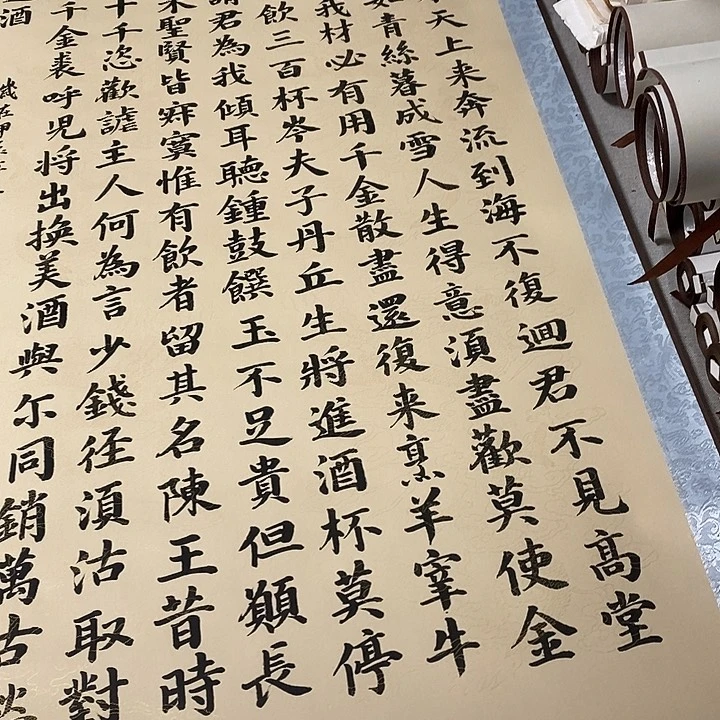 天上来奔流到海不復迴君不見高堂
如青絲暮成雪人生得意須盡歡莫使金
我材必有用千金散盡還復来烹羊宰牛
飲三百杯岑夫子丹丘生將進酒杯莫停
請君為我傾耳聽鍾鼓饌玉不足貴但願長
来聖賢皆寂寞惟有飲者留其名陳王昔時
十千恣歡謔主人何為言少錢径須沽取對
千金裘呼児将出換美酒與尔同銷萬古愁
酒
歲在甲